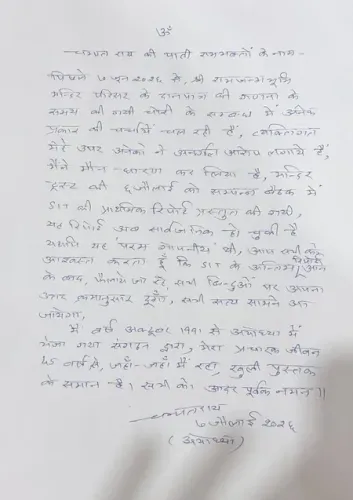 ॐ
चम्पत राय की पाती रामभक्तों के नाम -
पिछले ७ जून २०२६ से, श्री रामजन्मभूमि
मन्दिर परिसर के दानपात्र की गणना के
समय की गयी चोरी के सम्बन्ध में अनेक
प्रकार की चर्चायें चल रही हैं, व्यक्तिगत
मेरे ऊपर अनेकों ने अनर्गल आरोप लगाये हैं,
मैंने मौन धारण कर लिया है, मन्दिर
ट्रस्ट की ६ जौलाई को सम्पन्न बैठक में
SIT की प्राथमिक रिपोर्ट प्रस्तुत की गयी,
यह रिपोर्ट अब सार्वजनिक हो चुकी है
यद्यपि यह परम गोपनीय थी, आप सभी को
आश्वस्त करता हूँ कि SIT के अन्तिम रिपोर्ट आने
के बाद, फैलाये जा रहे, सभी बिन्दुओं पर अपना
उत्तर क्रमानुसार दूँगा, सभी सत्य सामने आ
जायेगा,
मैं वर्ष अक्टूबर 1991 से अयोध्या में
भेजा गया संगठन द्वारा, मेरा प्रचारक जीवन
45 वर्ष से, जहाँ-जहाँ मैं रहा, खुली पुस्तक
के समान है। सभी को आदर पूर्वक नमन॥
चम्पतराय
७ जौलाई २०२६
(अयोध्या)